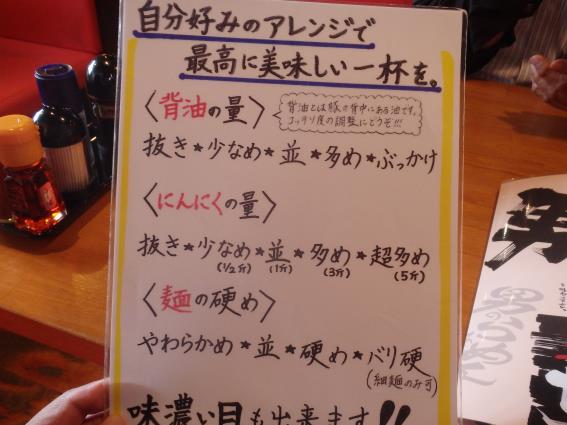 自分好みのアレンジで
最高に美味しい一杯を。
〈背油の量〉
背油とは豚の背中にある油です。
コッテリ度の調整にどうぞ!!!
抜き★少なめ★並★多め★ぶっかけ
〈にんにくの量〉
抜き★少なめ★並★多め★超多め
(1/2斤) (1斤) (3斤) (5斤)
〈麺の硬め〉
やわらかめ★並★硬め★バリ硬
(細麺のみ可)
味濃い目も出来ます!!
男